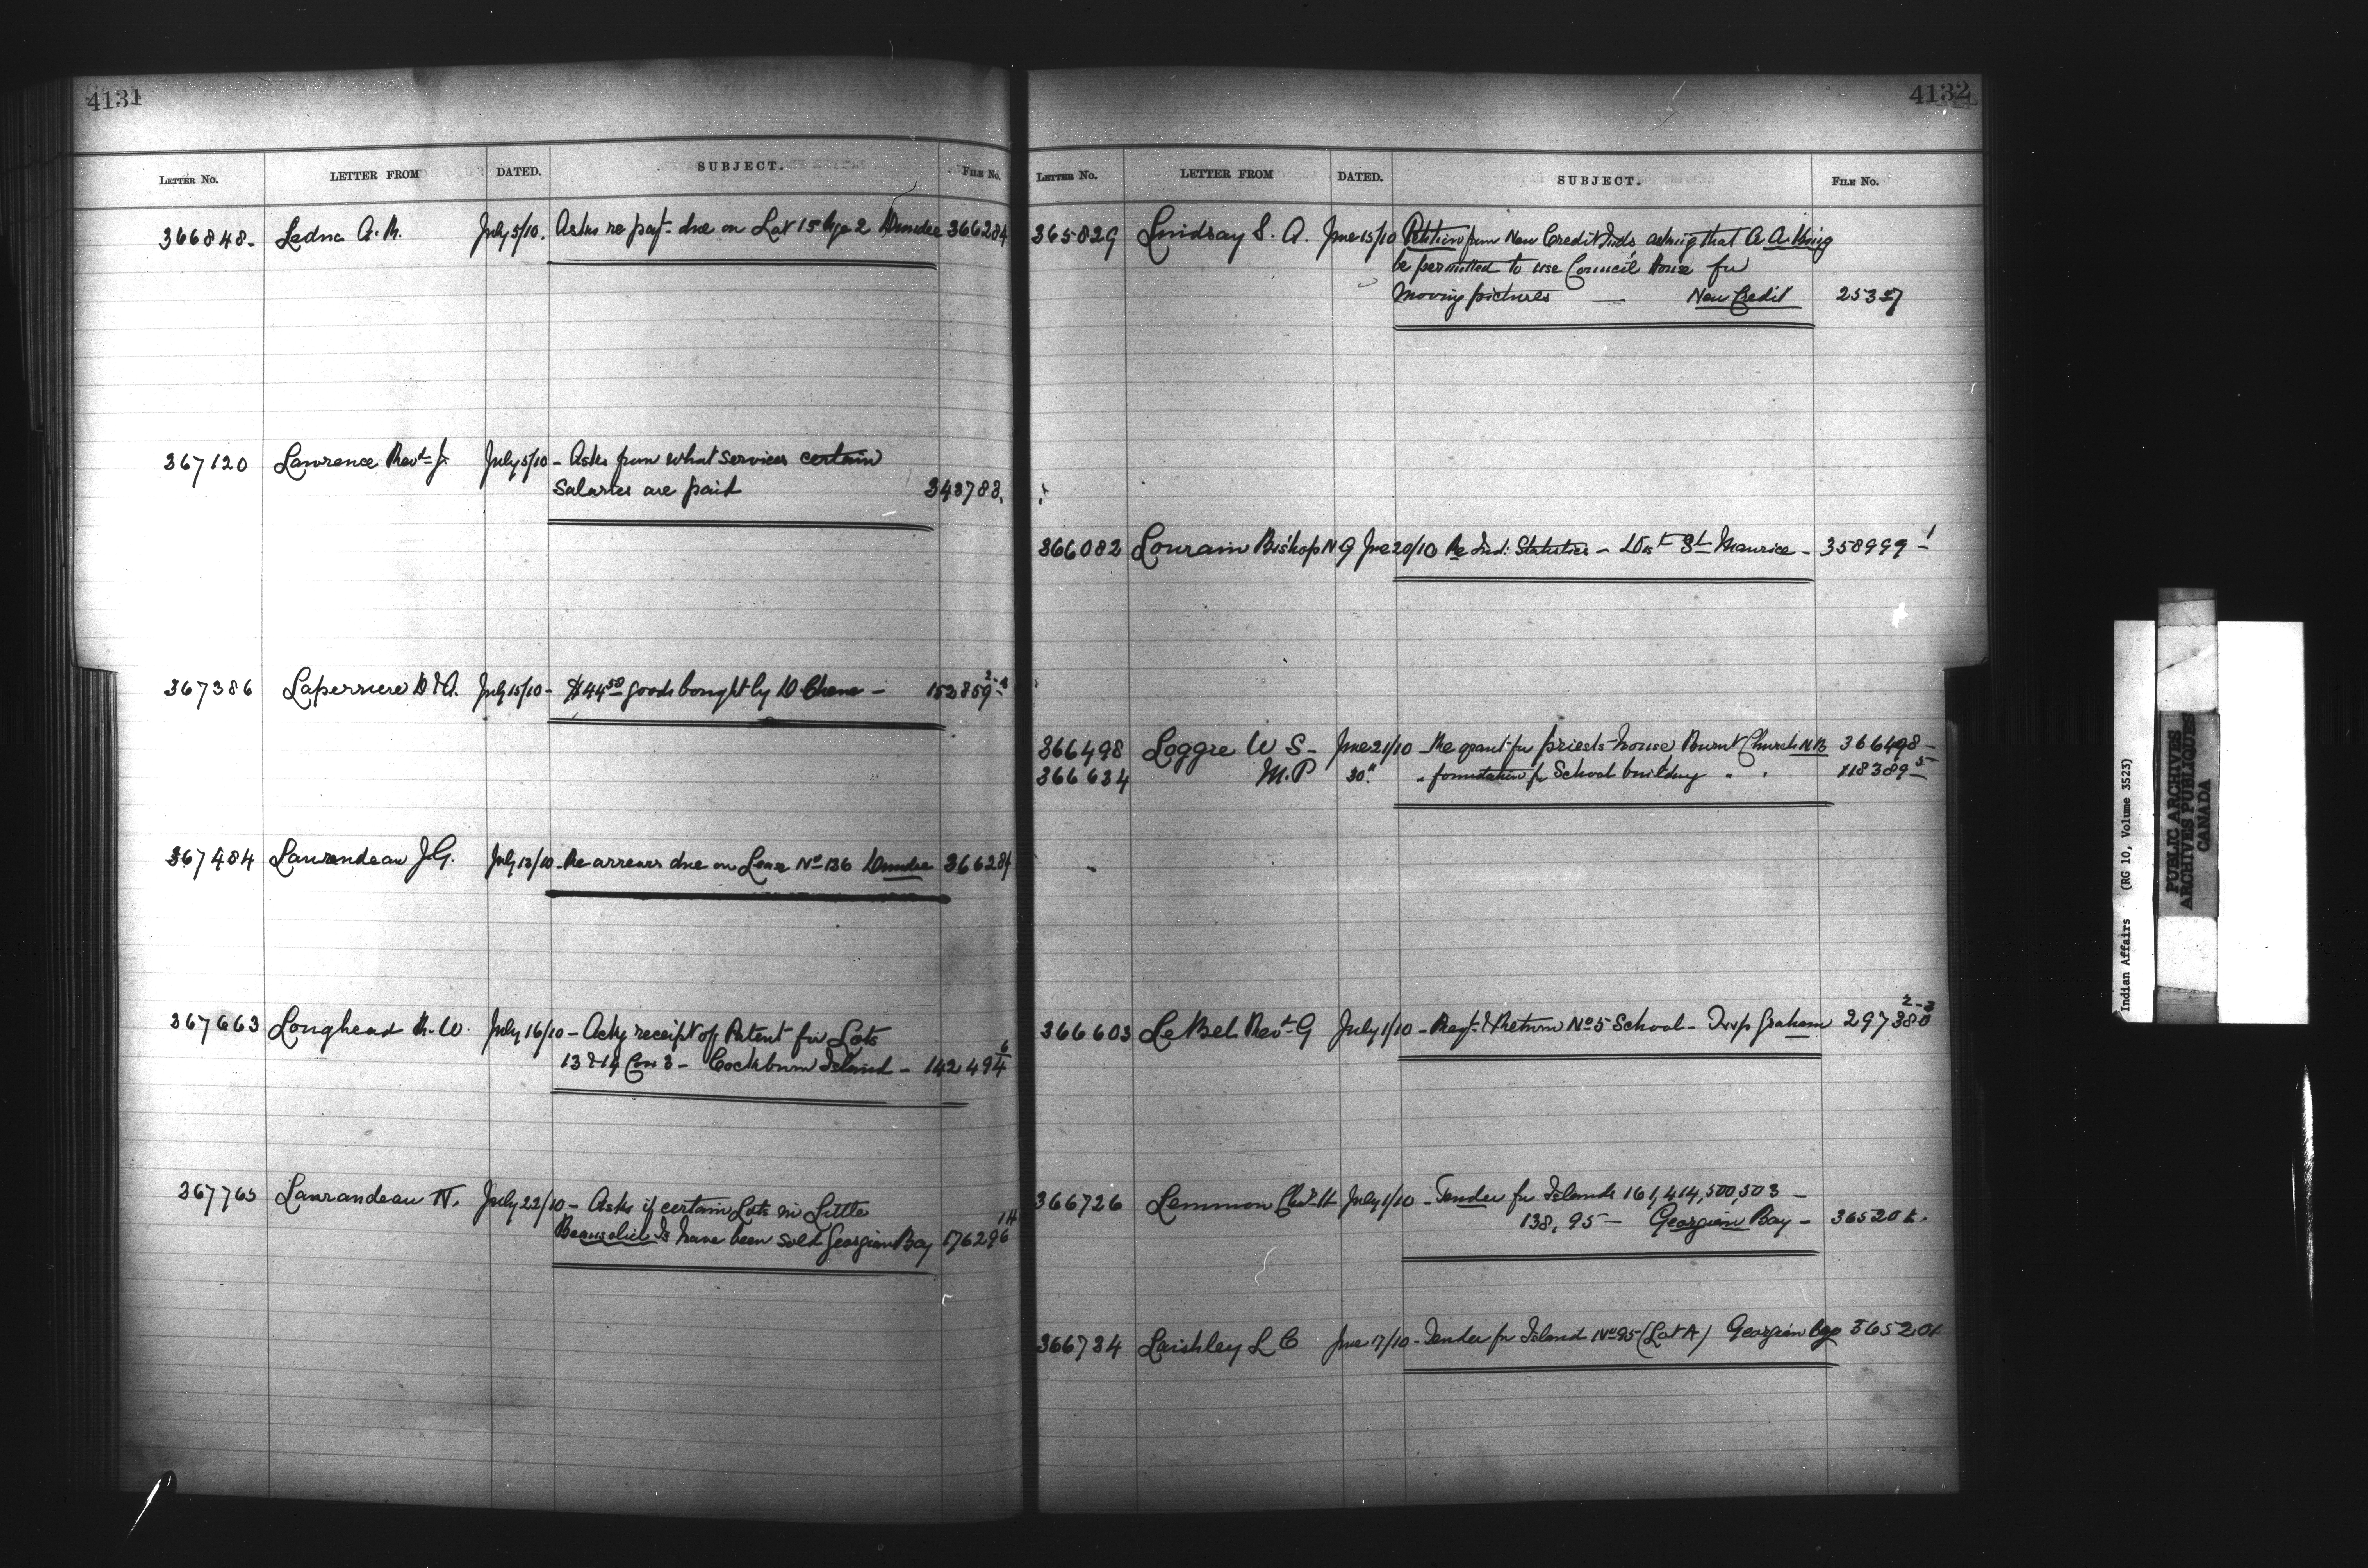 4131
LETTER No. LETTER FROM DATED. SUBJECT. FILE No.
366848 - Ledna A. R. July 5/10. Asks re payt due on Lot 15 Rge 2 Dundee 366284
367120 Lawrence Revd J. July 5/10 - Asks from what services certain
salaries are paid 343783.
367386 Laperriere D & A. July 15/10 - $44.50 goods bought by D. Chene - 152859 2-1
367484 Laurendeau J.G. July 13/10 - Re arrears due on Lease No 136 Dundee 366284
367663 Longhead R. W. July 16/10 - Ackg receipt of Patent for Lots
13 & 14 Con 3 - Cockburn Island - 142494 6
367765 Laurandeau N. July 22/10 - Asks if certain Lots in Little
Beausoliel Is have been sold Georgian Bay 176296 1H
4132
LETTER No. LETTER FROM DATED. SUBJECT. FILE No.
365829 Lindsay S. A. June 15/10 Petition from New Credit Inds. asking that A. A. King
be permitted to use Council House for
moving pictures — New Credit 25357
366082 Lourain Bishop N G June 20/10 Re Ind: Statistics - Dist St Maurice - 358999 - 1
366498 Loggie W S - June 21/10 - Re grant for priests house Burnt Church N.B. 366498 -
366634 M.P 30 " " foundation for School building " " 118389 - 5
366603 LeBel Revd G July 1/10 - Regt & Return No 5 School - Twp Graham 297380 2-3
366726 Lemmon Chas H July 1/10 - Tender for Islands 161, 414, 500, 503 -
138, 95 - Georgian Bay - 365201.
366734 Laishley L C June 17/10 - Tender for Island No 95 (Lot A) Georgian Bay 365201
Indian Affairs (RG 10, Volume 3523)
PUBLIC ARCHIVES
ARCHIVES PUBLIQUES
CANADA